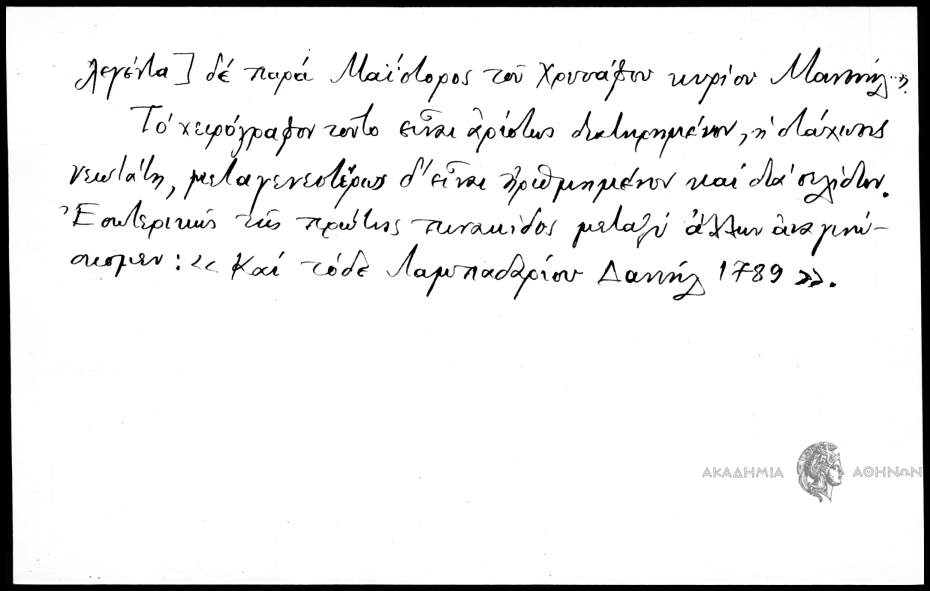 λεγέντα] δέ παρά Μαΐστορος τοῦ Χρυσάφου κυρίου Μανουήλ...».
Τό χειρόγραφον τοῦτο εἶναι ἀρίστως διατηρημένον, ἡ στάχωσις
νεωτάτη, μεταγενεστέρως δ' εἶναι ἠριθμημένον καί διά σελίδων.
Ἐσωτερικῶς τῆς πρώτης πινακίδος μεταξύ ἄλλων ἀναγινώ-
σκομεν: «Καί τόδε Λαμπαδαρίου Δανιήλ 1789».
ΑΚΑΔΗΜΙΑ ΑΘΗΝΩΝ